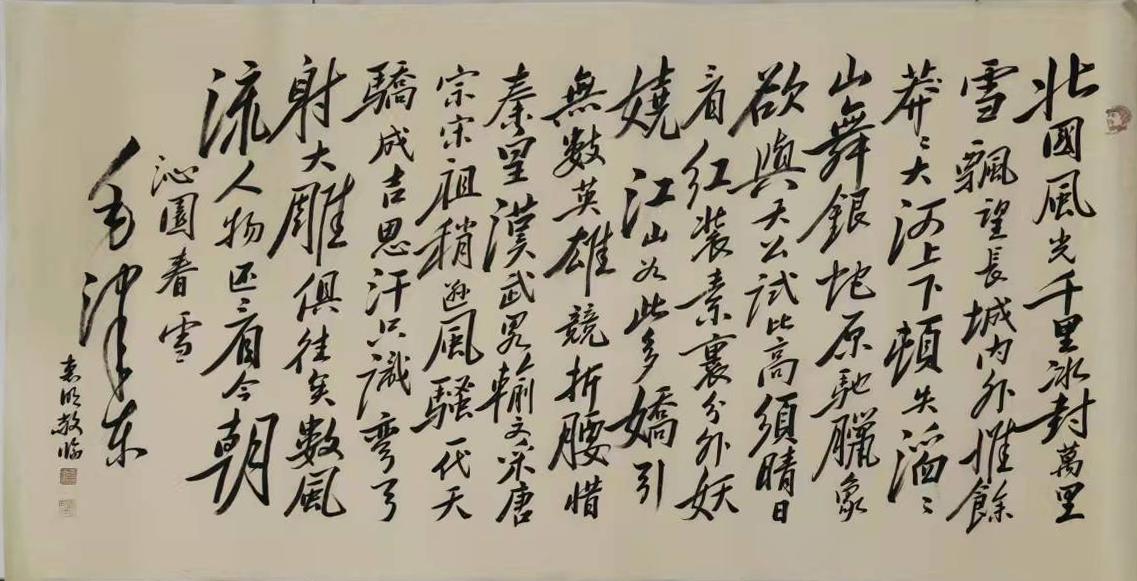 北國風光千里冰封萬里
雪飄望長城內外惟餘
莽〻大河上下頓失滔〻
山舞銀蛇原馳臘象
欲與天公試比高須晴日
看紅裝素裹分外妖
嬈江山如此多嬌引
無數英雄競折腰惜
秦皇漢武畧輸文采唐
宗宋祖稍逊風騷一代天
驕成吉思汗只識彎弓
射大雕俱往矣數風
流人物还看今朝
沁園春雪
毛澤東
明敬临